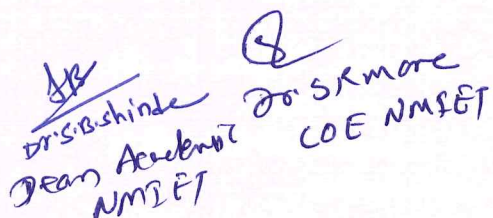 Dr.S.B.shinde
Dean Academic
NMIET
Dr. S R more
COE NMIET